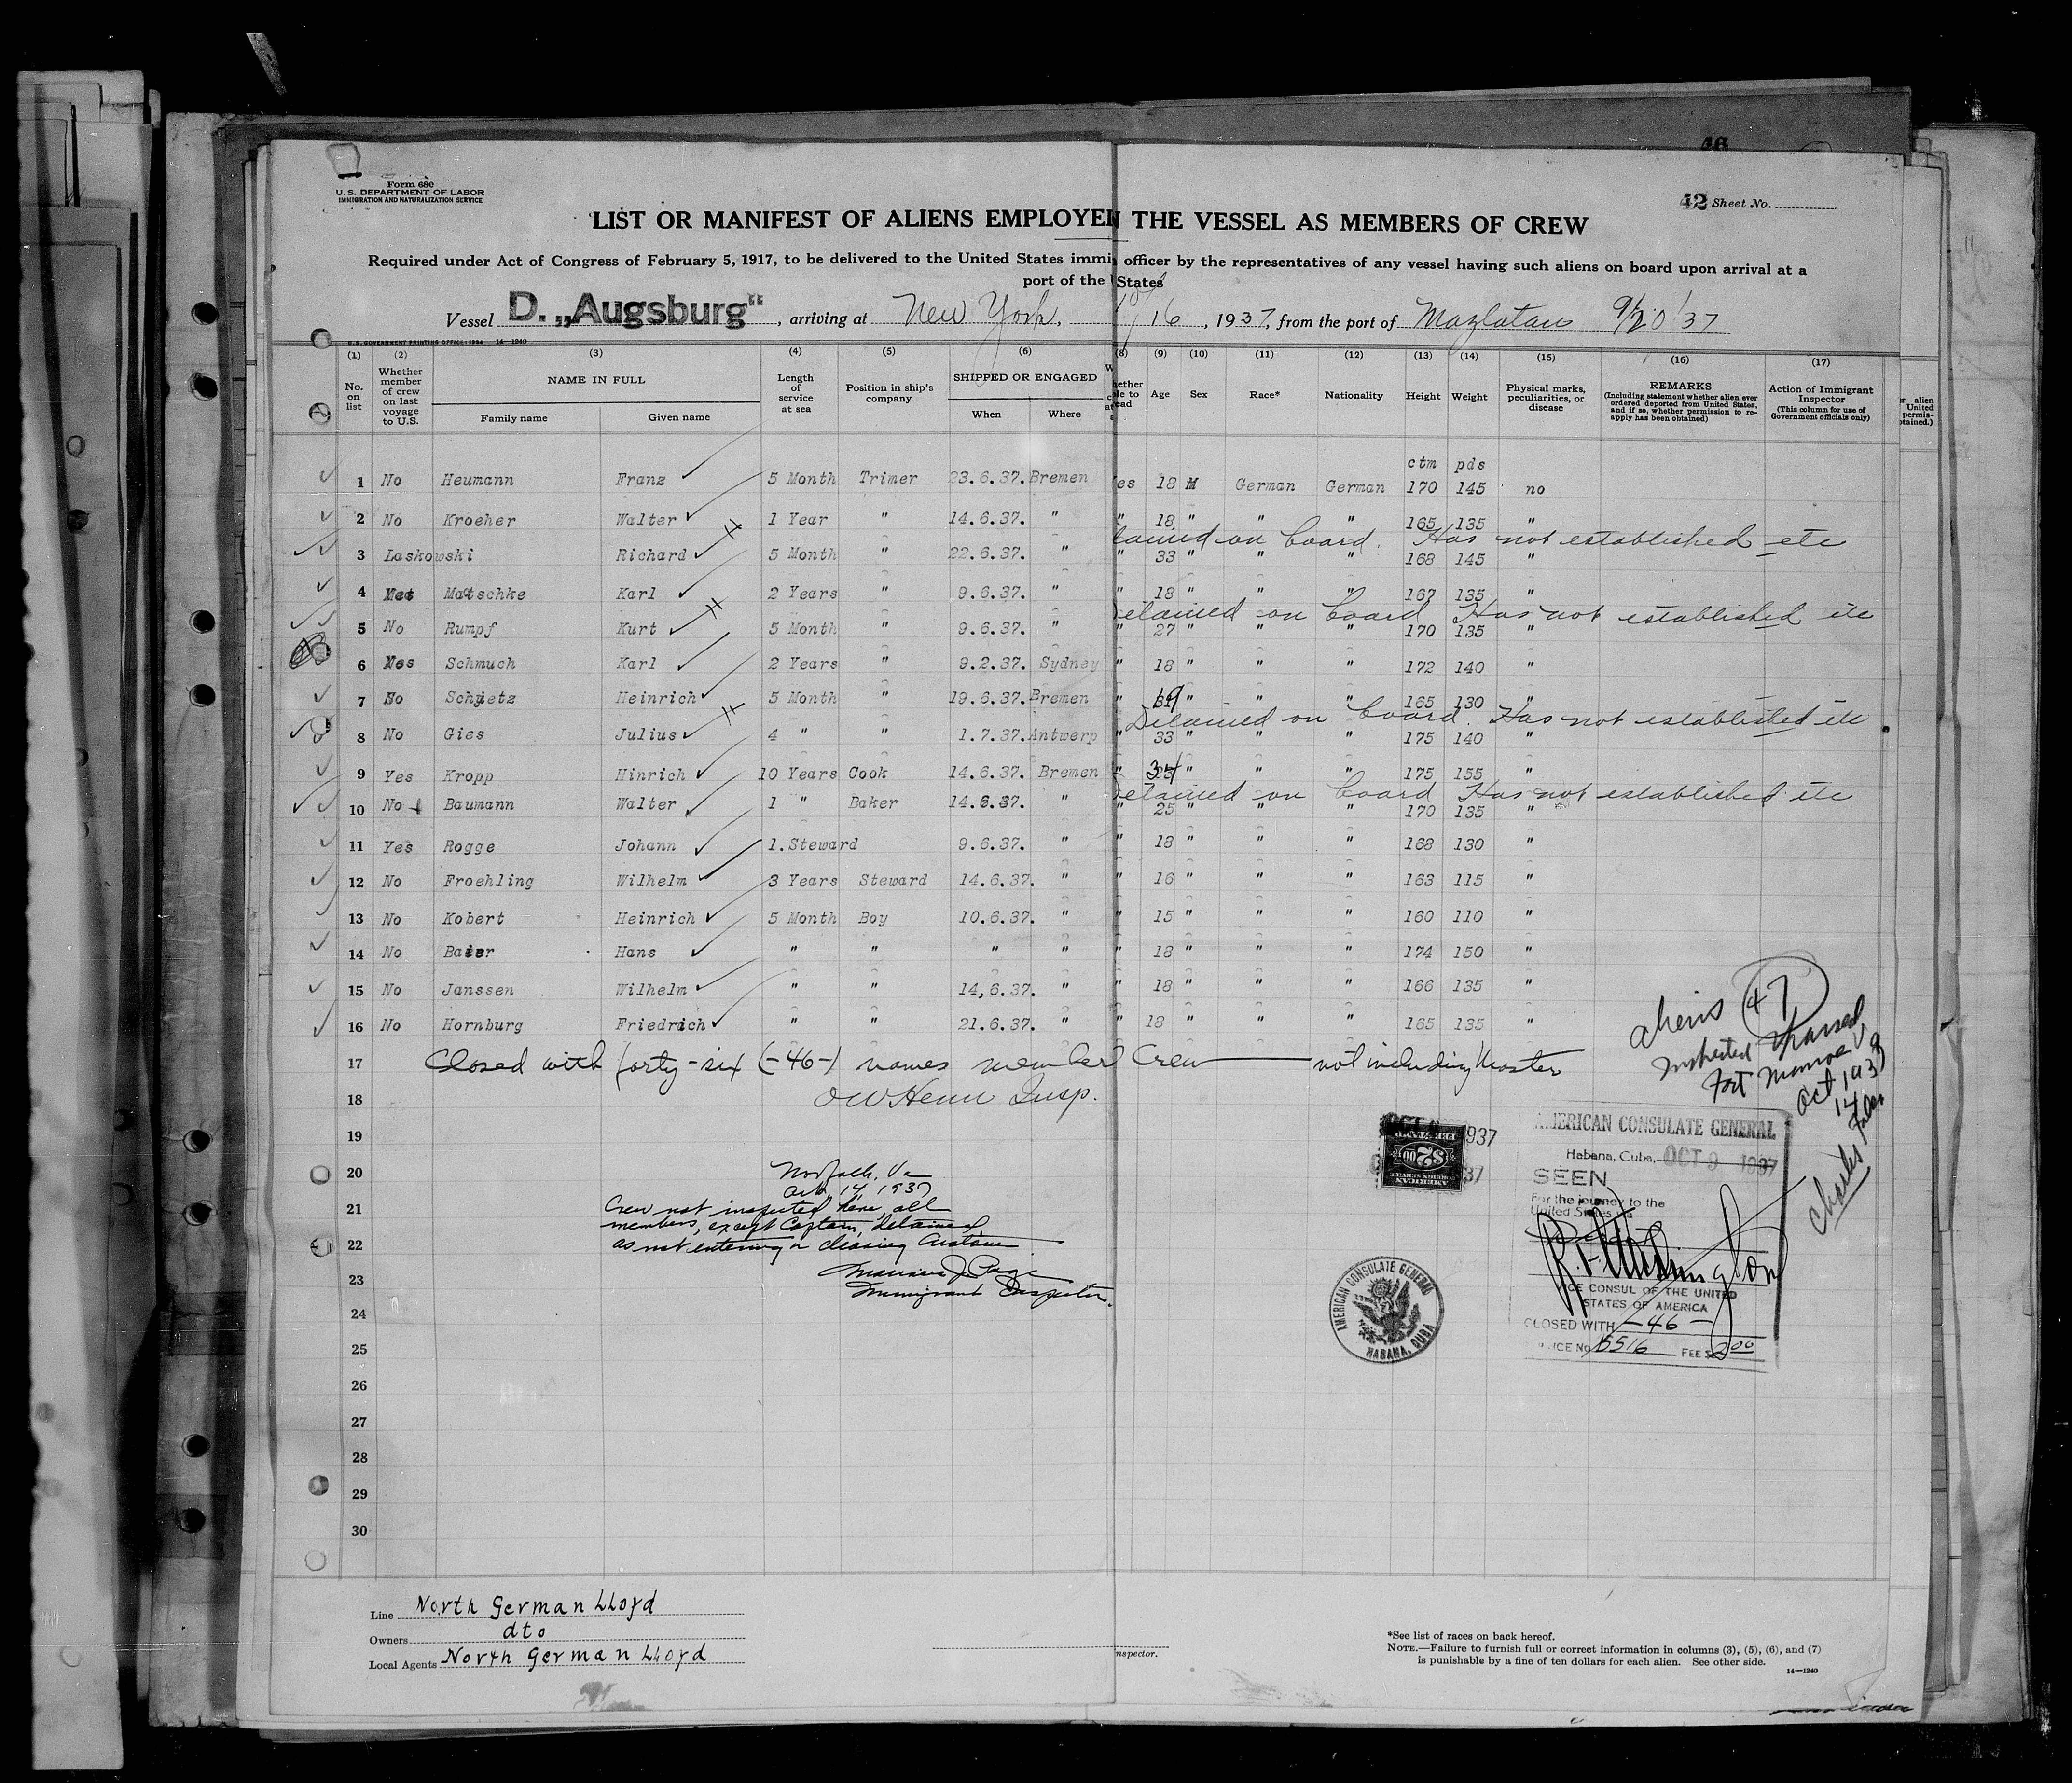 46
Form 680
U. S. DEPARTMENT OF LABOR
IMMIGRATION AND NATURALIZATION SERVICE
42 Sheet No.
LIST OR MANIFEST OF ALIENS EMPLOYED THE VESSEL AS MEMBERS OF CREW
Required under Act of Congress of February 5, 1917, to be delivered to the United States immi officer by the representatives of any vessel having such aliens on board upon arrival at a
port of the States
Vessel D. „Augsburg“, arriving at New York, 10/16, 1937, from the port of Mazlatan 9/20/37
U. S. GOVERNMENT PRINTING OFFICE: 1934 14—1240
(1) (2) (3) (4) (5) (6) (8) (9) (10) (11) (12) (13) (14) (15) (16) (17)
No. on list Whether member of crew on last voyage to U.S. NAME IN FULL Family name Given name Length of service at sea Position in ship's company SHIPPED OR ENGAGED When Where Age Sex Race* Nationality Height Weight Physical marks, peculiarities, or disease REMARKS (Including statement whether alien ever ordered deported from United States, and if so, whether permission to re-apply has been obtained) Action of Immigrant Inspector (This column for use of Government officials only)
ctm pds
1 No Heumann Franz 5 Month Trimer 23.6.37. Bremen es 18 M German German 170 145 no
2 No Kroeher Walter 1 Year " 14.6.37. " " 18 " " " 165 135 "
tained on board. Has not established etc
3 Laskowski Richard 5 Month " 22.6.37. " " 33 " " " 168 145 "
4 Matschke Karl 2 Years " 9.6.37. " " 18 " " " 167 135 "
etained on board Has not established etc
5 No Rumpf Kurt 5 Month " 9.6.37. " " 27 " " " 170 135 "
6 Yes Schmuch Karl 2 Years " 9.2.37. Sydney " 18 " " " 172 140 "
7 No Schuetz Heinrich 5 Month " 19.6.37. Bremen " 19 " " " 165 130 "
Detained on board. Has not established etc
8 No Gies Julius 4 " " 1.7.37. Antwerp " 33 " " " 175 140 "
9 Yes Kropp Hinrich 10 Years Cook 14.6.37. Bremen " 34 " " " 175 155 "
etained on board Has not established etc
10 No Baumann Walter 1 " Baker 14.6.37. " " 25 " " " 170 135 "
11 Yes Rogge Johann 1. Steward 9.6.37. " " 18 " " " 168 130 "
12 No Froehling Wilhelm 3 Years Steward 14.6.37. " " 16 " " " 163 115 "
13 No Kobert Heinrich 5 Month Boy 10.6.37. " " 15 " " " 160 110 "
14 No Baier Hans " " " " " 18 " " " 174 150 "
15 No Janssen Wilhelm " " 14,6.37. " " 18 " " " 166 135 "
16 No Hornburg Friedrich " " 21.6.37. " " 18 " " " 165 135 "
17 Closed with forty-six (-46-) names member Crew not including Master
18 Insp.
19
20 Norfolk, Va
Oct 14 1937
21 Crew not inspected here, all
members, except Captain, detained
22 as not entering or clearing Customs
23 Maurice J. Page
Immigrant Inspector.
24
25
26
27
28
29
30
Aliens 47
Inspected
Fort Monroe Va
Oct 14 193
Charles
1937
$2.00
AMERICAN FOREIGN SERVICE
FEE STAMP
AMERICAN CONSULATE GENERAL
Habana, Cuba, OCT 9 1937
SEEN
For the journey to the
United States
VICE CONSUL OF THE UNITED
STATES OF AMERICA
CLOSED WITH -46-
SERVICE No. 5516 FEE $2.00
AMERICAN CONSULATE GENERAL HABANA, CUBA
Line North German Lloyd
Owners dto
Local Agents North German Lloyd
nspector.
*See list of races on back hereof.
NOTE.—Failure to furnish full or correct information in columns (3), (5), (6), and (7)
is punishable by a fine of ten dollars for each alien. See other side.
14—1240